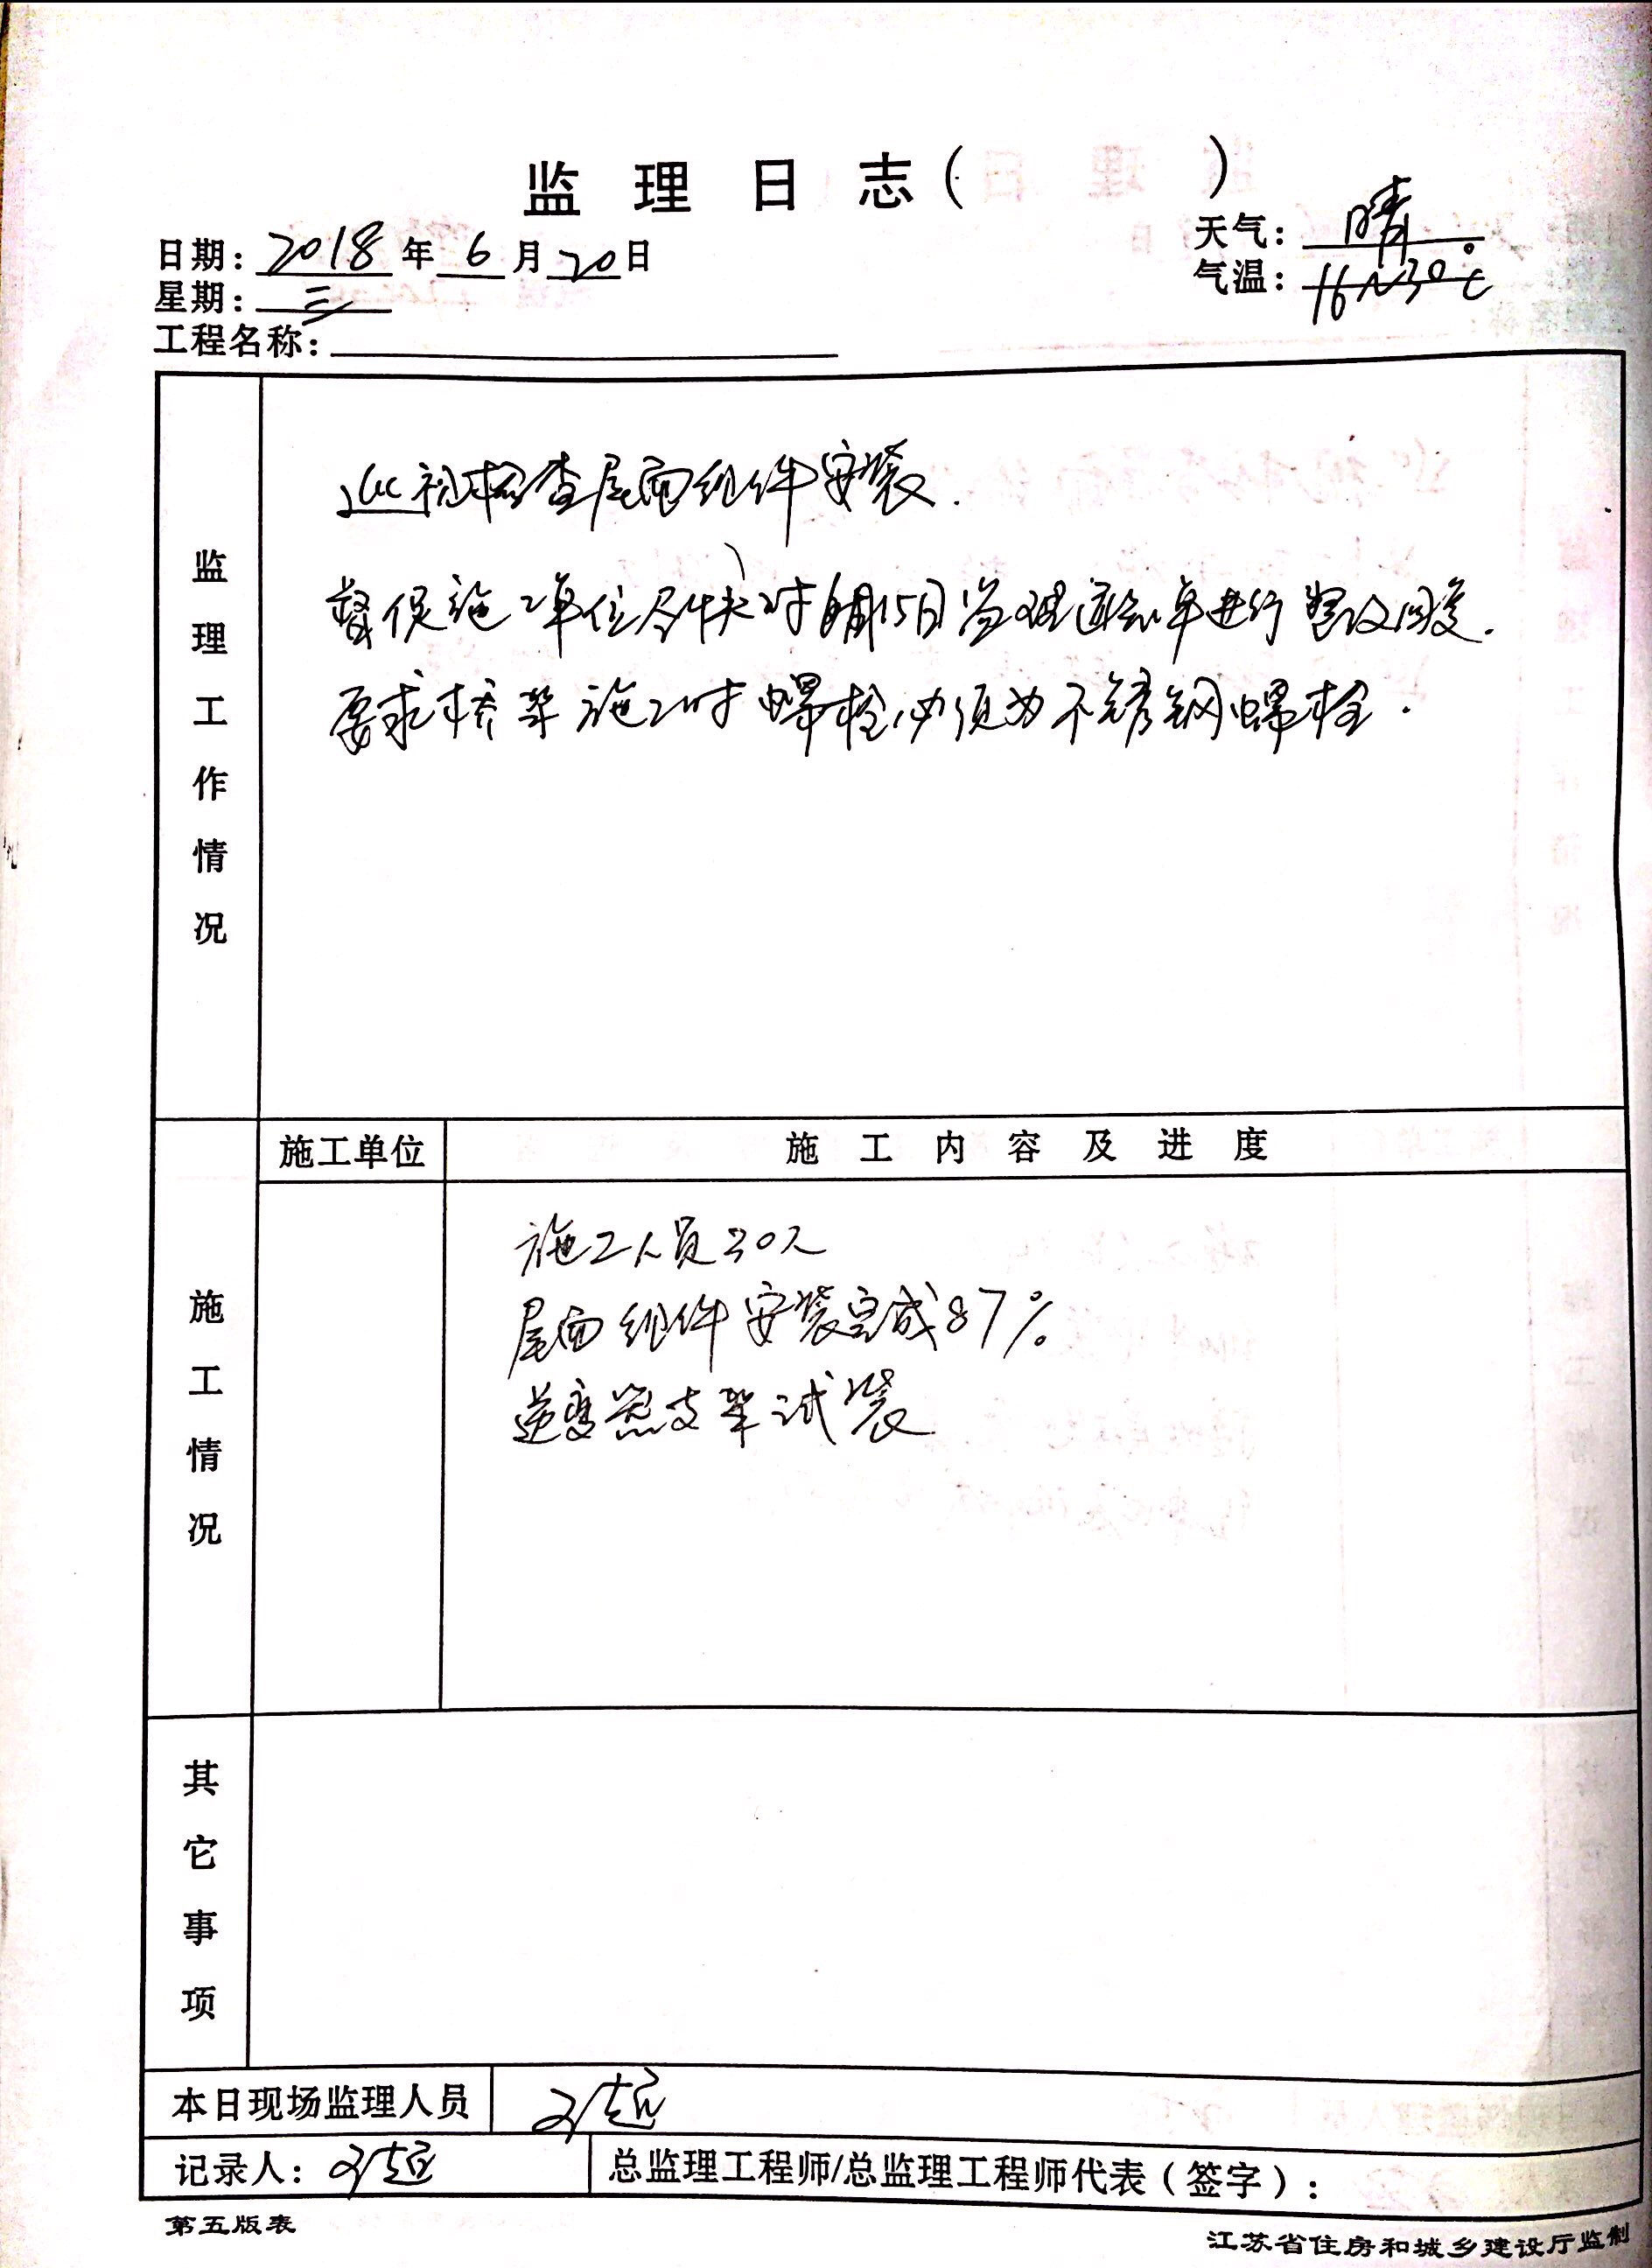 监理日志( )
日期: 2018 年 6 月 20 日
天气: 晴
星期: 三
气温: 16~30℃
工程名称:
监理工作情况
巡视检查屋面组件安装.
督促施工单位尽快对 15日监理通知单进行整改回复.
要求桥架施工时螺栓必须为不锈钢螺栓.
施工情况
施工单位
施工内容及进度
施工人员30人
屋面组件安装完成87%
逆变器支架试装
其它事项
本日现场监理人员
记录人:
总监理工程师/总监理工程师代表(签字):
第五版表
江苏省住房和城乡建设厅监制